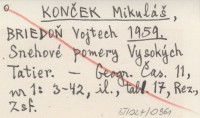 KONČEK Mikuláš,
BRIEDOŇ Vojtech 1959.
Snehové pomery Vysokých
Tatier. — Geogr. Čas. 11,
nr 1: 3-42, il., tabl. 17, Rez.,
Zsf.